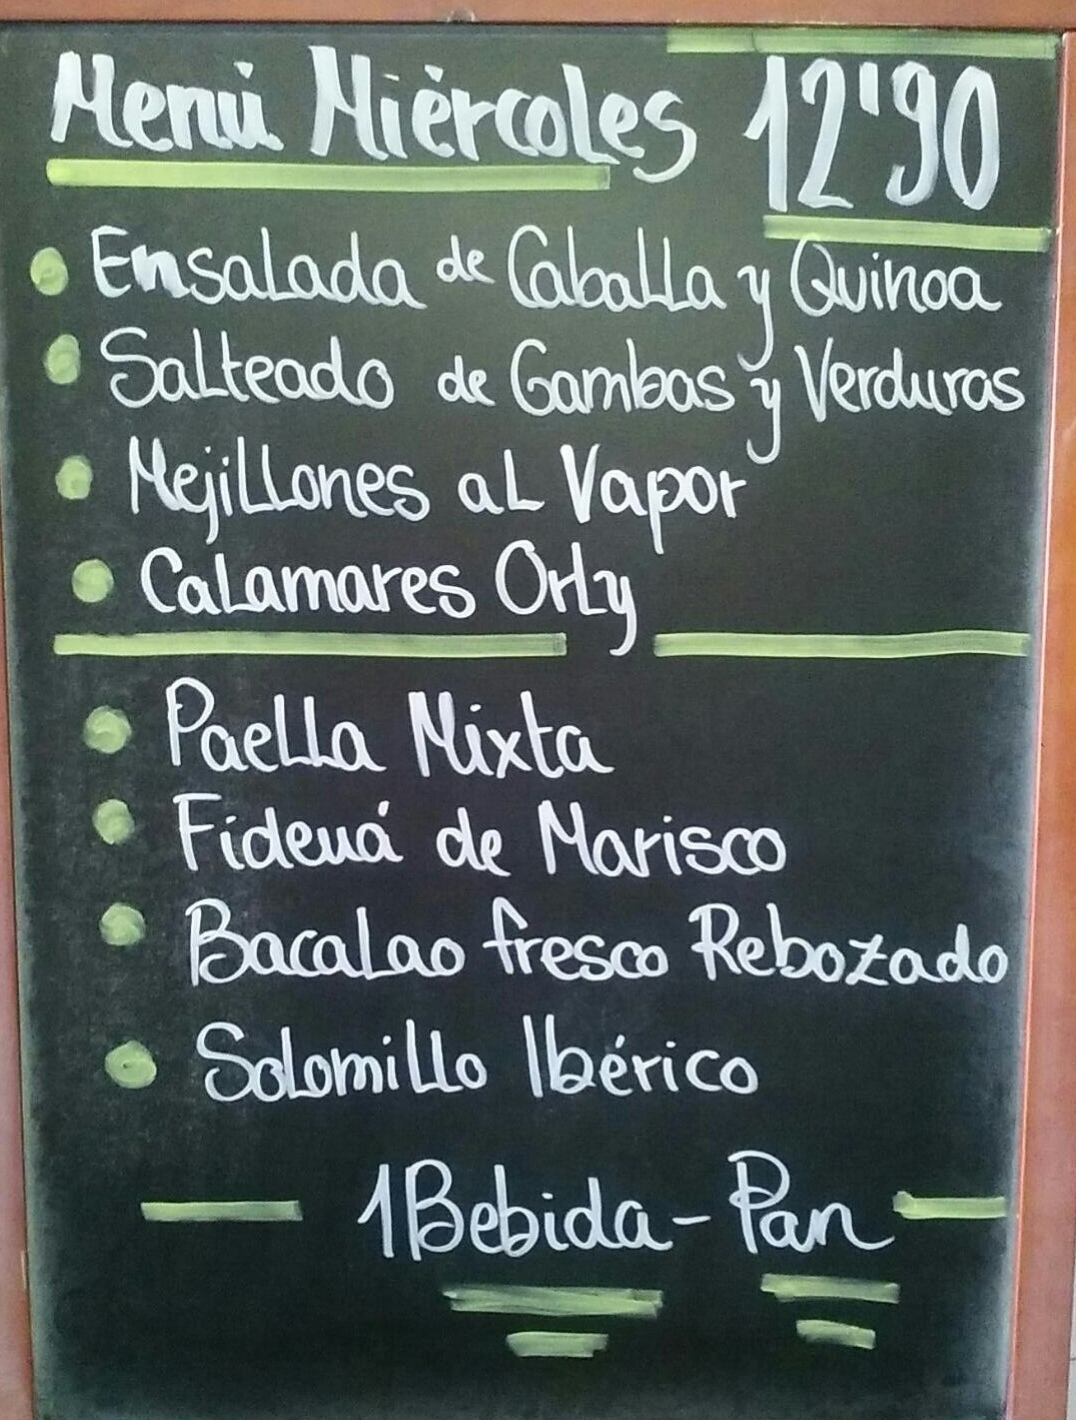 Menú Miércoles 12'90
Ensalada de Caballa y Quinoa
Salteado de Gambas y Verduras
Mejillones al Vapor
Calamares Orly
Paella Mixta
Fideuá de Marisco
Bacalao fresco Rebozado
Solomillo Ibérico
1 Bebida - Pan